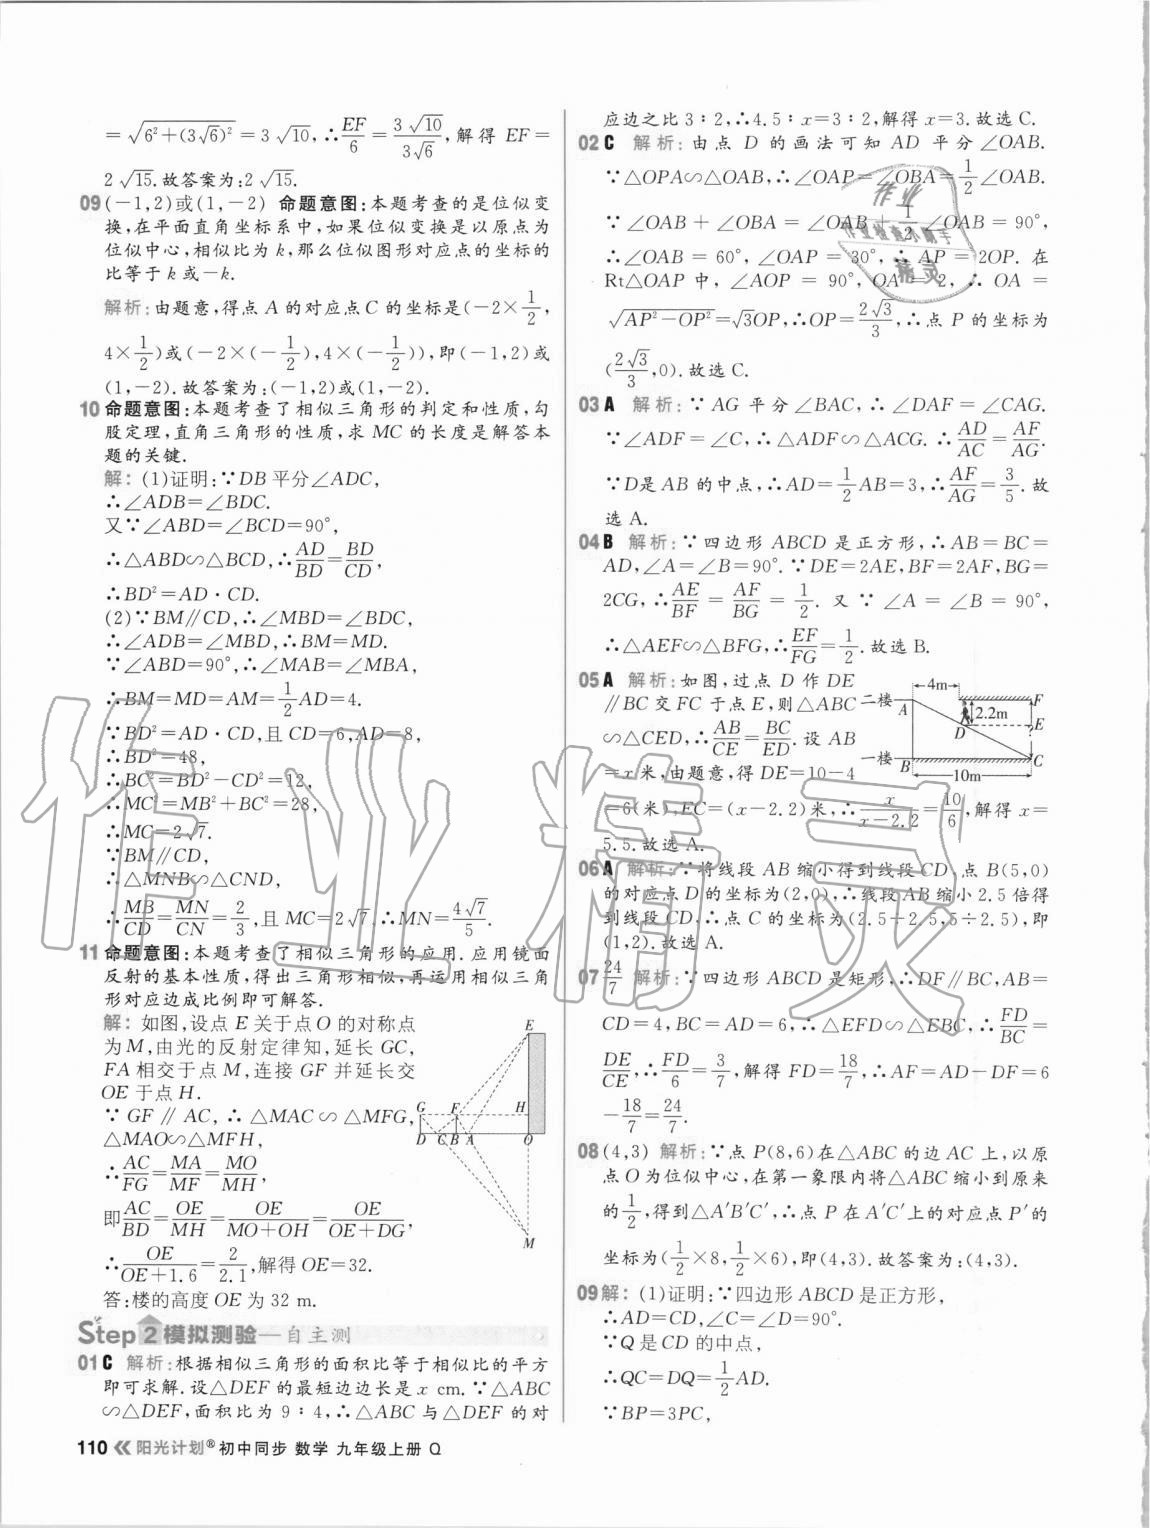 =√(6²+(3√6)²)=3√10,∴EF/6=3√10/3√6,解得 EF=
2√15.故答案为:2√15.
09 (-1,2)或(1,-2) 命题意图:本题考查的是位似变
换,在平面直角坐标系中,如果位似变换是以原点为
位似中心,相似比为 k,那么位似图形对应点的坐标的
比等于 k 或-k.
解析:由题意,得点 A 的对应点 C 的坐标是(-2×1/2,
4×1/2)或(-2×(-1/2),4×(-1/2)),即(-1,2)或
(1,-2).故答案为:(-1,2)或(1,-2).
10 命题意图:本题考查了相似三角形的判定和性质,勾
股定理,直角三角形的性质,求 MC 的长度是解答本
题的关键.
解:(1)证明:∵DB 平分∠ADC,
∴∠ADB=∠BDC.
又∵∠ABD=∠BCD=90°,
∴△ABD∽△BCD,∴AD/BD=BD/CD,
∴BD²=AD·CD.
(2)∵BM∥CD,∴∠MBD=∠BDC,
∴∠ADB=∠MBD,∴BM=MD.
∵∠ABD=90°,∴∠MAB=∠MBA,
∴BM=MD=AM=1/2AD=4.
∵BD²=AD·CD,且 CD=6,AD=8,
∴BD²=48,
∴BC²=BD²-CD²=12,
∴MC²=MB²+BC²=28,
∴MC=2√7.
∵BM∥CD,
∴△MNB∽△CND,
∴MB/CD=MN/CN=2/3,且 MC=2√7,∴MN=4√7/5.
11 命题意图:本题考查了相似三角形的应用.应用镜面
反射的基本性质,得出三角形相似,再运用相似三角
形对应边成比例即可解答.
解:如图,设点 E 关于点 O 的对称点
为 M,由光的反射定律知,延长 GC,
FA 相交于点 M,连接 GF 并延长交
OE 于点 H.
∵ GF∥AC,∴△MAC∽△MFG,
△MAO∽△MFH,
∴AC/FG=MA/MF=MO/MH,
即AC/BD=OE/MH=OE/(MO+OH)=OE/(OE+DG),
∴OE/(OE+1.6)=2/2.1,解得 OE=32.
答:楼的高度 OE 为 32 m.
E
G F H
D C B A O
M
Step 2 模拟测验—自主测
01 C 解析:根据相似三角形的面积比等于相似比的平方
即可求解.设△DEF 的最短边边长是 x cm.∵△ABC
∽△DEF,面积比为 9∶4,∴△ABC 与△DEF 的对
应边之比 3∶2,∴4.5∶x=3∶2,解得 x=3.故选 C.
02 C 解析:由点 D 的画法可知 AD 平分∠OAB.
∵△OPA∽△OAB,∴∠OAP=∠OBA=1/2∠OAB.
∵∠OAB+∠OBA=∠OAB+1/2∠OAB=90°,
∴∠OAB=60°,∠OAP=30°,∴AP=2OP.在
Rt△OAP 中,∠AOP=90°,OA=2,∴OA=
√(AP²-OP²)=√3OP,∴OP=2√3/3,∴点 P 的坐标为
(2√3/3,0).故选 C.
03 A 解析:∵AG 平分∠BAC,∴∠DAF=∠CAG.
∵∠ADF=∠C,∴△ADF∽△ACG.∴AD/AC=AF/AG.
∵D是 AB 的中点,∴AD=1/2AB=3,∴AF/AG=3/5.故
选 A.
04 B 解析:∵四边形 ABCD 是正方形,∴AB=BC=
AD,∠A=∠B=90°.∵DE=2AE,BF=2AF,BG=
2CG,∴AE/BF=AF/BG=1/2.又∵∠A=∠B=90°,
∴△AEF∽△BFG,∴EF/FG=1/2.故选 B.
05 A 解析:如图,过点 D 作 DE
∥BC 交 FC 于点 E,则△ABC
∽△CED,∴AB/CE=BC/ED.设 AB
=x 米,由题意,得 DE=10-4
=6(米),EC=(x-2.2)米,∴x/(x-2.2)=10/6,解得 x=
5.5.故选 A.
4m
二楼 A F
2.2m
D E
?
一楼 B C
10m
06 A 解析:∵将线段 AB 缩小得到线段 CD,点 B(5,0)
的对应点 D 的坐标为(2,0),∴线段 AB 缩小 2.5 倍得
到线段 CD,∴点 C 的坐标为(2.5÷2.5,5÷2.5),即
(1,2).故选 A.
07 24/7 解析:∵四边形 ABCD 是矩形,∴DF∥BC,AB=
CD=4,BC=AD=6,∴△EFD∽△EBC,∴FD/BC=
DE/CE,∴FD/6=3/7,解得 FD=18/7,∴AF=AD-DF=6
-18/7=24/7.
08 (4,3) 解析:∵点 P(8,6)在△ABC 的边 AC 上,以原
点 O 为位似中心,在第一象限内将△ABC 缩小到原来
的1/2,得到△A′B′C′,∴点 P 在 A′C′上的对应点 P′的
坐标为(1/2×8,1/2×6),即(4,3).故答案为:(4,3).
09 解:(1)证明:∵四边形 ABCD 是正方形,
∴AD=CD,∠C=∠D=90°.
∵Q 是 CD 的中点,
∴QC=DQ=1/2AD.
∵BP=3PC,
110 《 阳光计划® 初中同步 数学 九年级上册 Q
作业精灵
作业
作业检查小助手
精灵